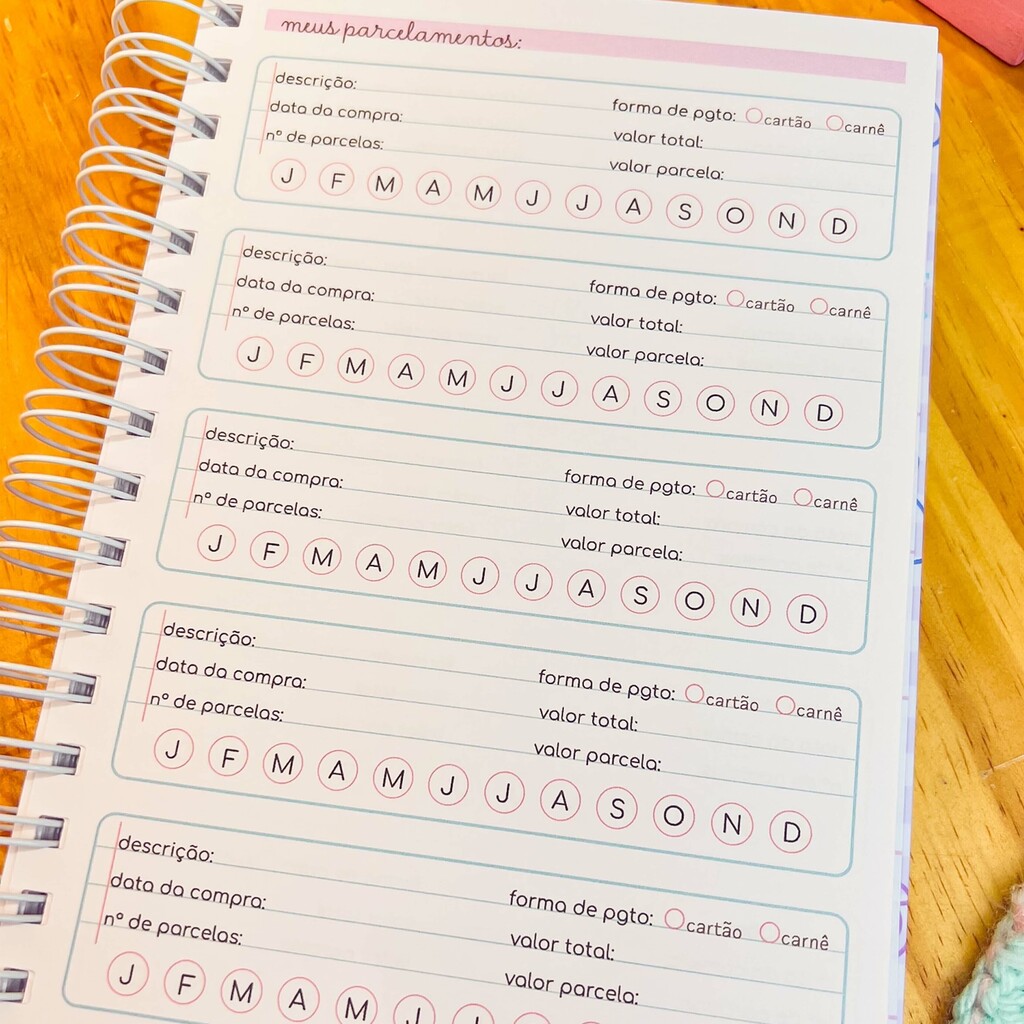 meus parcelamentos:
descrição:
data da compra: forma de pgto: cartão carnê
nº de parcelas: valor total:
valor parcela:
J F M A M J J A S O N D
descrição:
data da compra: forma de pgto: cartão carnê
nº de parcelas: valor total:
valor parcela:
J F M A M J J A S O N D
descrição:
data da compra: forma de pgto: cartão carnê
nº de parcelas: valor total:
valor parcela:
J F M A M J J A S O N D
descrição:
data da compra: forma de pgto: cartão carnê
nº de parcelas: valor total:
valor parcela:
J F M A M J J A S O N D
descrição:
data da compra: forma de pgto: cartão carnê
nº de parcelas: valor total:
valor parcela:
J F M A M J J